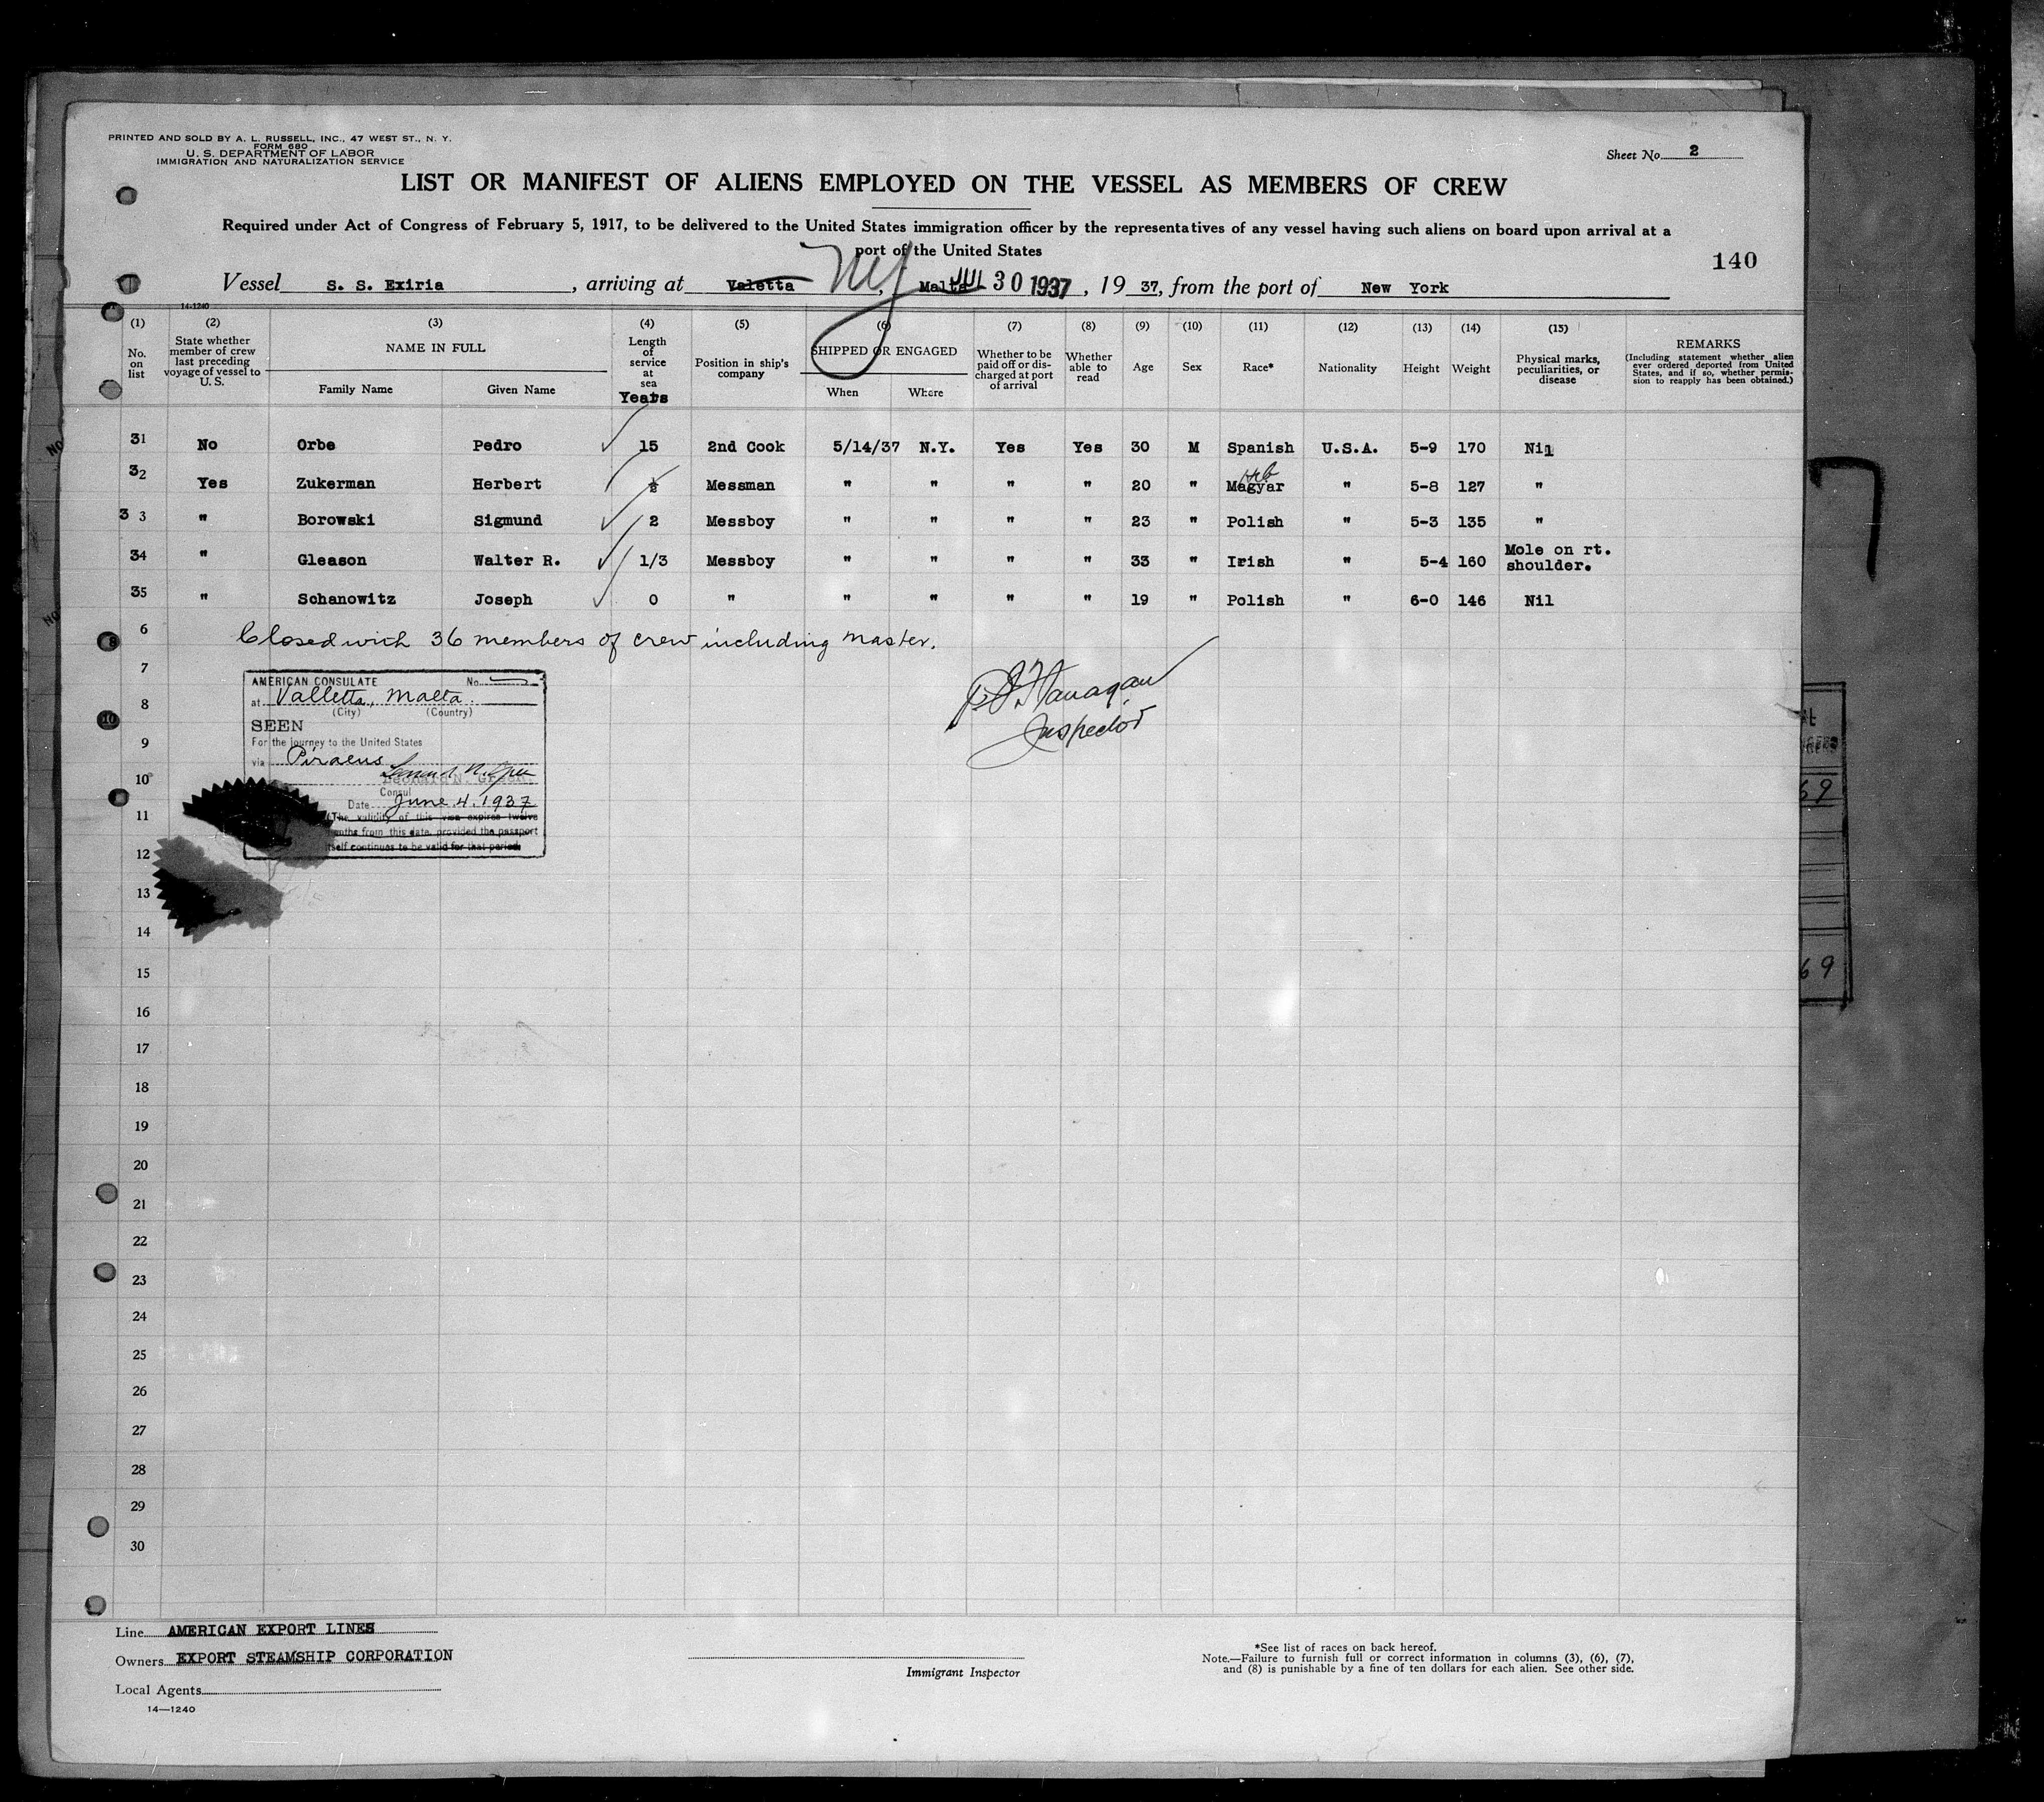 PRINTED AND SOLD BY A. L. RUSSELL, INC., 47 WEST ST., N. Y.
FORM 680
U. S. DEPARTMENT OF LABOR
IMMIGRATION AND NATURALIZATION SERVICE
Sheet No. 2
LIST OR MANIFEST OF ALIENS EMPLOYED ON THE VESSEL AS MEMBERS OF CREW
Required under Act of Congress of February 5, 1917, to be delivered to the United States immigration officer by the representatives of any vessel having such aliens on board upon arrival at a
port of the United States
140
Vessel S. S. Exiria, arriving at Valetta, Malta NY JUL 30 1937, 19 37, from the port of New York
14-1240
(1) (2) (3) (4) (5) (6) (7) (8) (9) (10) (11) (12) (13) (14) (15)
No. on list
State whether member of crew last preceding voyage of vessel to U. S.
NAME IN FULL
Family Name Given Name
Length of service at sea
Years
Position in ship's company
SHIPPED OR ENGAGED
When Where
Whether to be paid off or discharged at port of arrival
Whether able to read
Age
Sex
Race*
Nationality
Height
Weight
Physical marks, peculiarities, or disease
REMARKS
(Including statement whether alien ever ordered deported from United States, and if so, whether permission to reapply has been obtained.)
31 No Orbe Pedro 15 2nd Cook 5/14/37 N.Y. Yes Yes 30 M Spanish U.S.A. 5-9 170 Nil
32 Yes Zukerman Herbert ½ Messman " " " " 20 " Magyar Heb " 5-8 127 "
3 3 " Borowski Sigmund 2 Messboy " " " " 23 " Polish " 5-3 135 "
34 " Gleason Walter R. 1/3 Messboy " " " " 33 " Irish " 5-4 160 Mole on rt. shoulder.
35 " Schanowitz Joseph 0 " " " " " 19 " Polish " 6-0 146 Nil
6 Closed with 36 members of crew including master.
7
8
9
10
11
12
13
14
15
16
17
18
19
20
21
22
23
24
25
26
27
28
29
30
AMERICAN CONSULATE No.
at Valletta, Malta
(City) (Country)
SEEN
For the journey to the United States
via Piraeus
Consul
Date June 4, 1937
(The validity of this visa expires twelve
months from this date, provided the passport
itself continues to be valid for that period.
Flanagan
Inspector
Line AMERICAN EXPORT LINES
Owners EXPORT STEAMSHIP CORPORATION
Local Agents
14—1240
Immigrant Inspector
*See list of races on back hereof.
Note.—Failure to furnish full or correct information in columns (3), (6), (7),
and (8) is punishable by a fine of ten dollars for each alien. See other side.
No
No
69
69